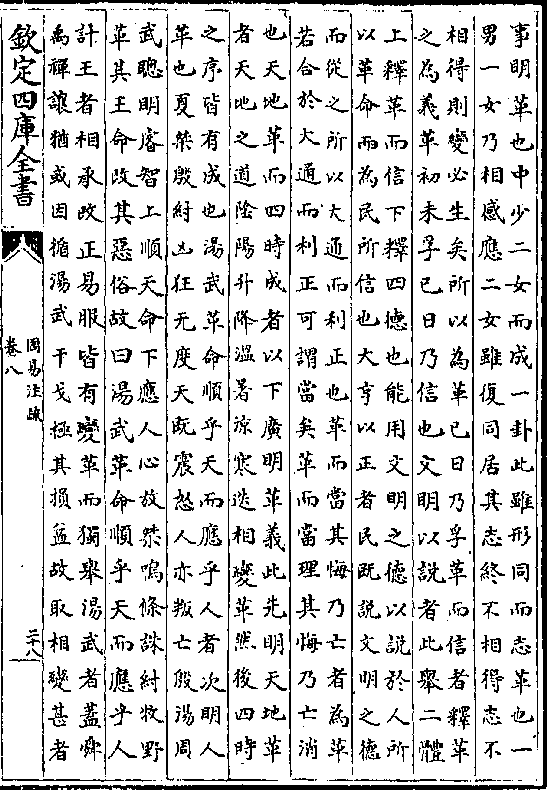 事明革也中少二女而成一卦此雖形同而志革也一
男一女乃相感應二女雖復同居其志終不相得志不
相得則變必生矣所以為革已日乃孚革而信者釋革
之為義革初未孚已日乃信也文明以說者此舉二體
上釋革而信下釋四德也能用文明之德以說於人所
以革命而為民所信也大亨以正者民既說文明之德
而從之所以大通而利正也革而當其悔乃亡者為革
若合於大通而利正可謂當矣革而當理其悔乃亡消
也天地革而四時成者以下廣明革義此先明天地革
者天地之道陰陽升降溫暑涼寒迭相變革然後四時
之序皆有成也湯武革命順乎天而應乎人者次明人
革也夏桀殷紂凶狂无度天既震怒人亦叛亡殷湯周
武聰明睿智上順天命下應人心放桀鳴條誅紂牧野
革其王命改其惡俗故曰湯武革命順乎天而應乎人
計王者相承改正易服皆有變革而獨舉湯武者蓋舜
禹禪讓猶或因循湯武干戈極其損益故取相變甚者
欽定四庫全書
周易注疏
卷八
二十八